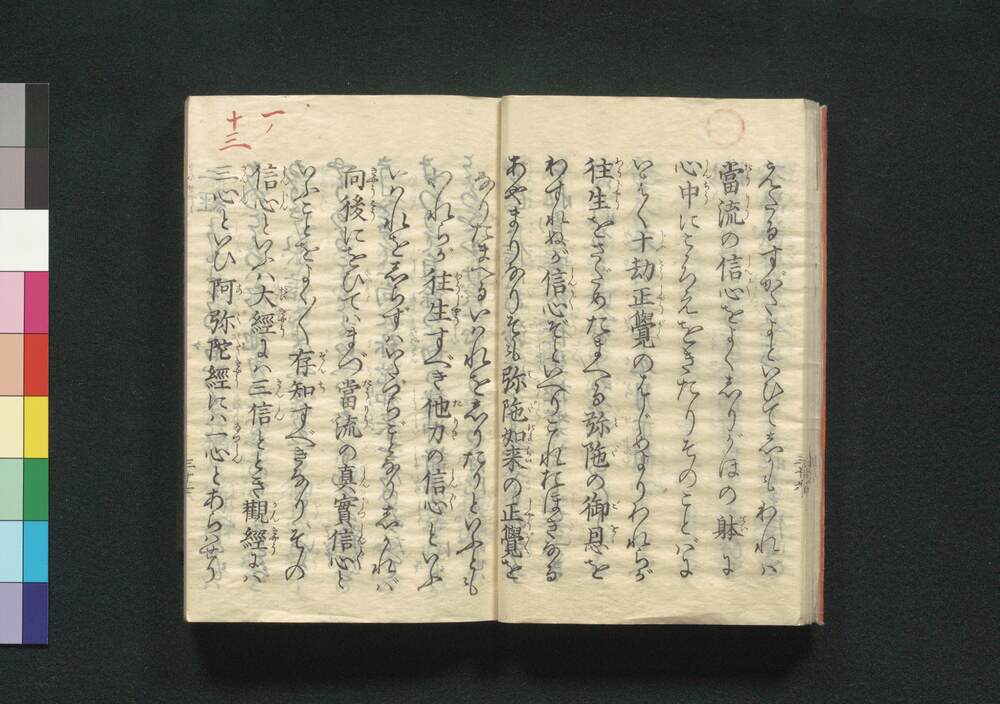 えたるすがたよといひてしかもわれは
當流の信心をよくしりがほの躰に
心中にこゝろえをきたりそのことばに
いはく十劫正覺のはじめよりわれらが
往生をさだめたまへる弥陁の御恩を
わすれぬが信心ぞといへりこれおほきなる
あやまりなりそも弥陁如来の正覺を
一ノ
十三
なりたまへるいはれをしりたりといふとも
われらが往生すべき他力の信心といふ
いはれをしらずはいたづらごとなりしかれば
向後にをひてはまづ當流の真實信心と
いふことをよく〱存知すべきなりその
信心といふは大經には三信ととき觀經には
三心といひ阿弥陀經には一心とあらはせり